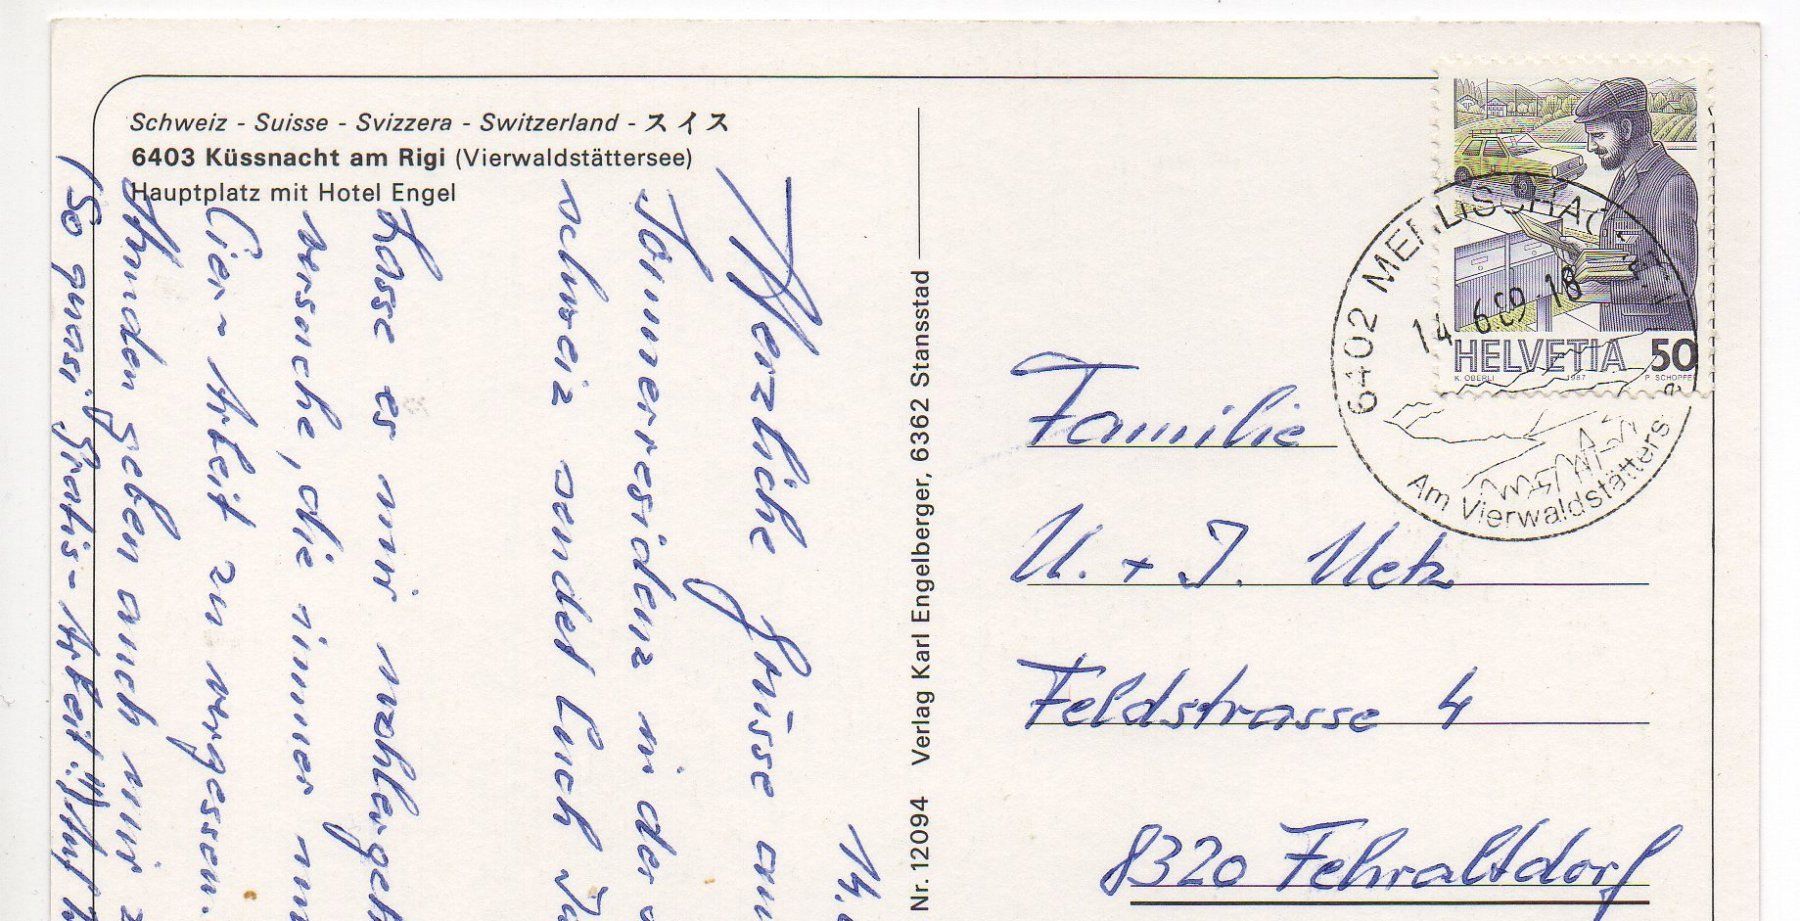 Schweiz - Suisse - Svizzera - Switzerland - スイス
6403 Küssnacht am Rigi (Vierwaldstättersee)
Hauptplatz mit Hotel Engel
14.
Herzliche Grüsse
Sommerresidenz in der
schweiz sendet Euch
Lasse es mir
versuche, die immer
Eier-Arbeit zu vergessen.
geben auch mir
(So quasi "Gratis-Arbeit!!") Auf
Nr. 12094 Verlag Karl Engelberger, 6362 Stansstad
HELVETIA 50
K. OBERLI 1987 P. SCHOPFE
6402 MERLISCHACHEN
14.6.89 18
Am Vierwaldstätters
Familie
U. + J. Metz
Feldstrasse 4
8320 Fehraltdorf